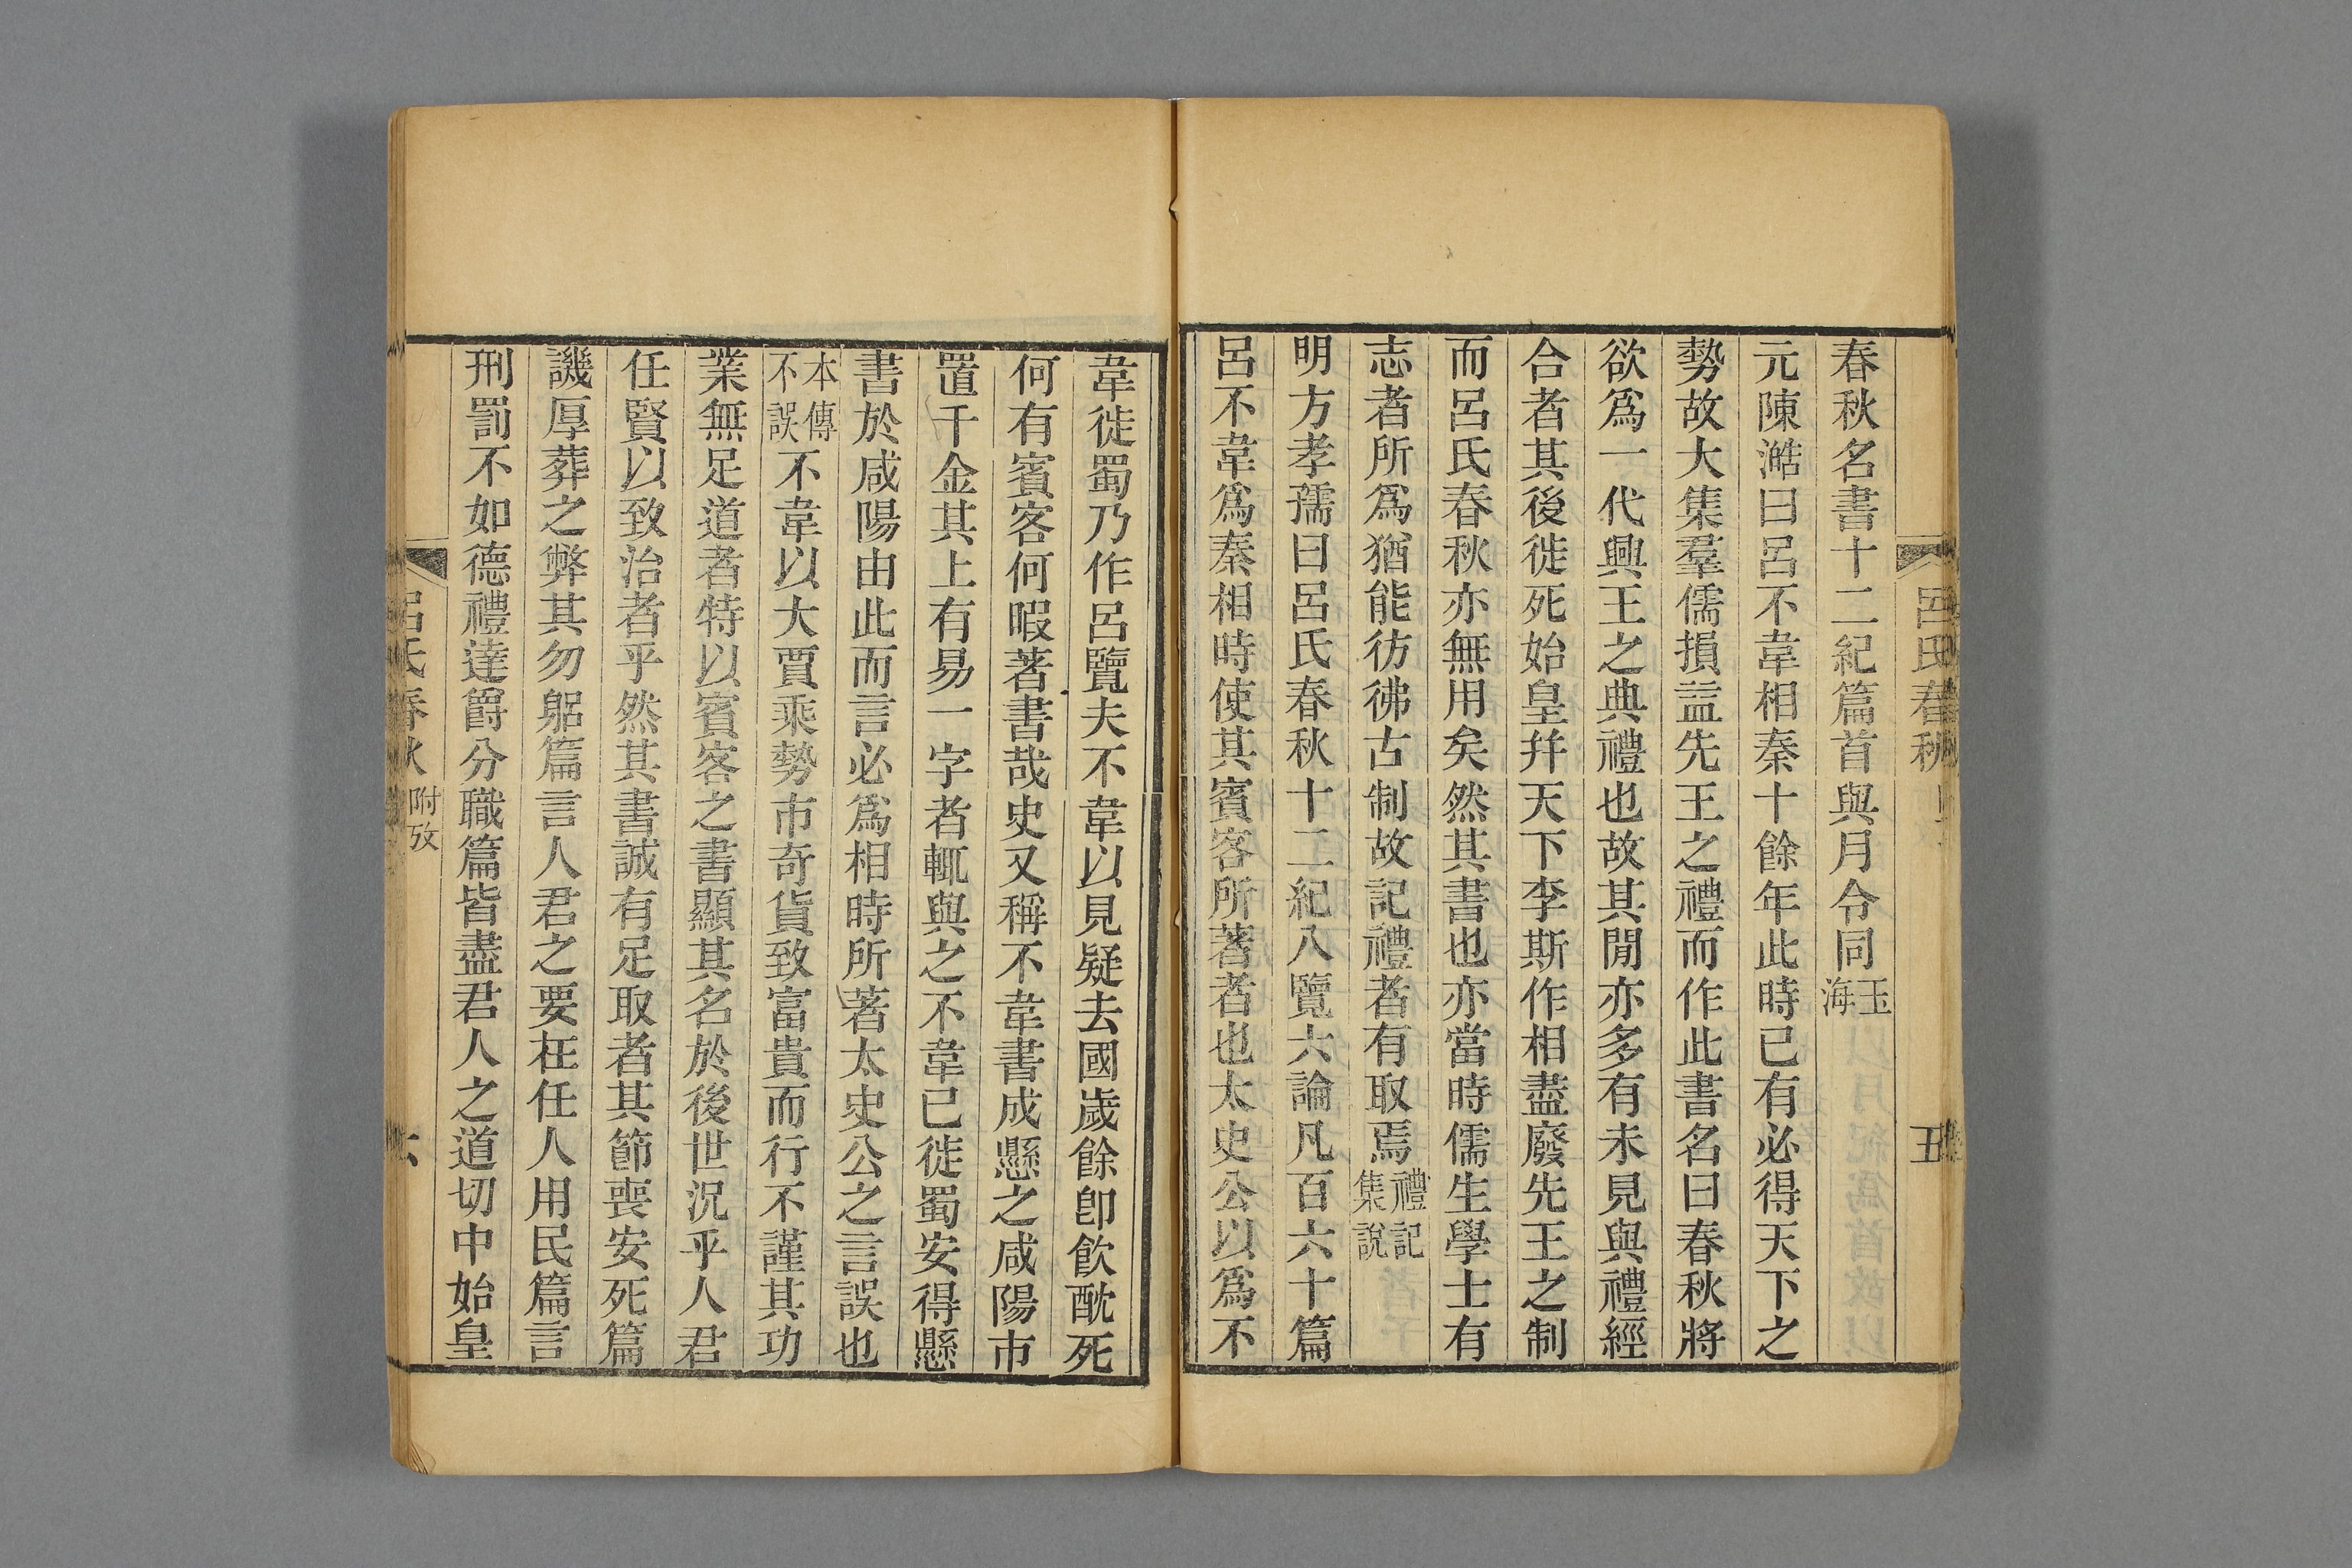 呂氏春秋
五
春秋名書十二紀篇首與月令同玉海
元陳澔曰呂不韋相秦十餘年此時已有必得天下之
勢故大集羣儒損益先王之禮而作此書名曰春秋將
欲爲一代興王之典禮也故其閒亦多有未見與禮經
合者其後徙死始皇幷天下李斯作相盡廢先王之制
而呂氏春秋亦無用矣然其書也亦當時儒生學士有
志者所爲猶能彷彿古制故記禮者有取焉禮記集說
明方孝孺曰呂氏春秋十二紀八覽六論凡百六十篇
呂不韋爲秦相時使其賓客所著者也太史公以爲不
韋徙蜀乃作呂覽夫不韋以見疑去國歲餘卽飮酖死
何有賓客何暇著書哉史又稱不韋書成懸之咸陽市
置千金其上有易一字者輒與之不韋已徙蜀安得懸
書於咸陽由此而言必爲相時所著太史公之言誤也
本傳不誤不韋以大賈乘勢市奇貨致富貴而行不謹其功
業無足道者特以賓客之書顯其名於後世況乎人君
任賢以致治者乎然其書誠有足取者其節喪安死篇
譏厚葬之弊其勿躬篇言人君之要在任人用民篇言
刑罰不如德禮達爵分職篇皆盡君人之道切中始皇
呂氏春秋 附攷
六